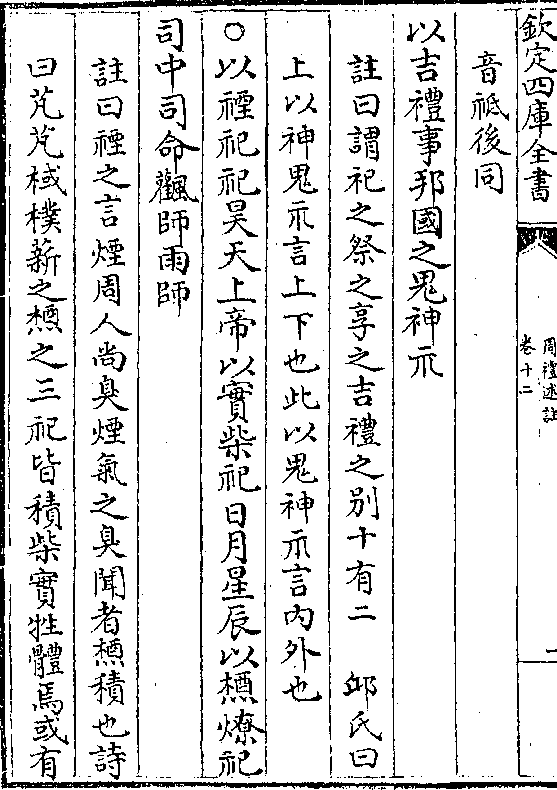 欽定四庫全書
周禮述註
卷十二
一
音祗後同
以吉禮事邦國之鬼神示
註曰謂祀之祭之享之吉禮之别十有二　邱氏曰
上以神鬼示言上下也此以鬼神示言内外也
○以禋祀祀昊天上帝以實柴祀日月星辰以槱燎祀
司中司命飌師雨師
註曰禋之言煙周人尚臭煙氣之臭聞者槱積也詩
曰芃芃棫樸薪之槱之三祀皆積柴實牲體焉或有